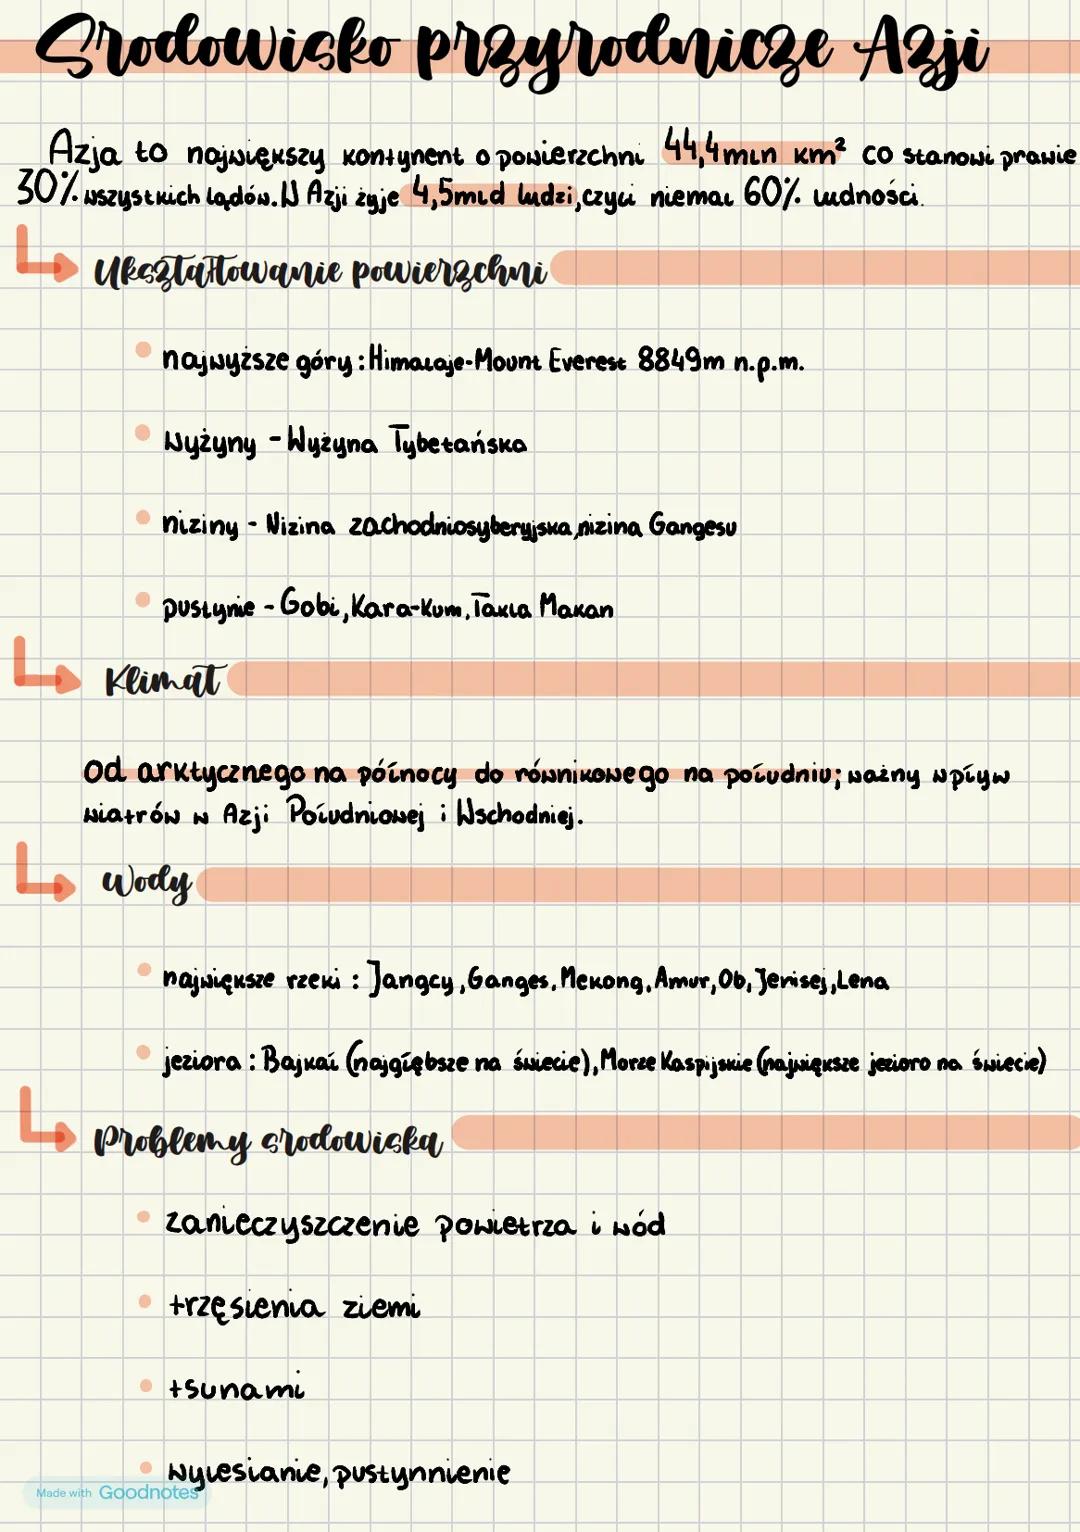 Srodowisko przyrodnicze Azji
Azja to największy kontynent o powierzchni 44,4mln km² co stanowi prawie
30% wszystkich lądów. W Azji żyje 4,5mld ludzi, czyli niemal 60% ludności.
Ukształtowanie powierzchni
najwyższe góry: Himalaje-Mount Everest 8849m n.p.m.
Wyżyny - Wyżyna Tybetańska
niziny - Nizina zachodniosyberyjska, nizina Gangesu
pustynie - Gobi, Kara-Kum, Takla Makan
Klimat
Od arktycznego na północy do równikowego na południu; ważny wpływ
wiatrów w Azji Południowej i Wschodniej.
Wody
największe rzeki : Jangcy, Ganges, Mekong, Amur, Ob, Jenisej, Lena
jeziora : Bajkał (najgłębsze na świecie), Morze Kaspijskie (największe jezioro na świecie)
Problemy srodowiska
zanieczyszczenie powietrza i wód
trzęsienia ziemi
tsunami
wylesianie, pustynnienie
Made with Goodnotes